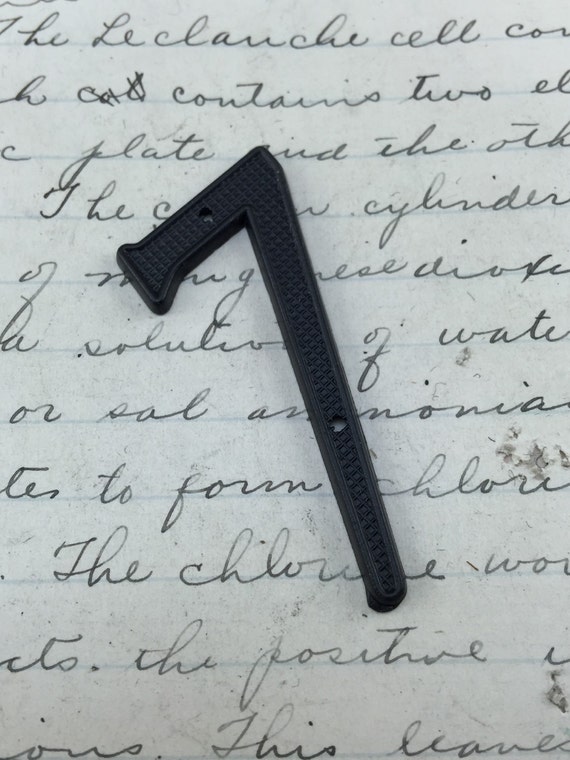 The Leclanche cell con
contains two el
c plate and the oth
The c cylinder
of mang nese dioxi
a solution of wate
or sal ammonia
tes to form chlori
The chlorine wo
cts. the positive
ions. This leaves
7